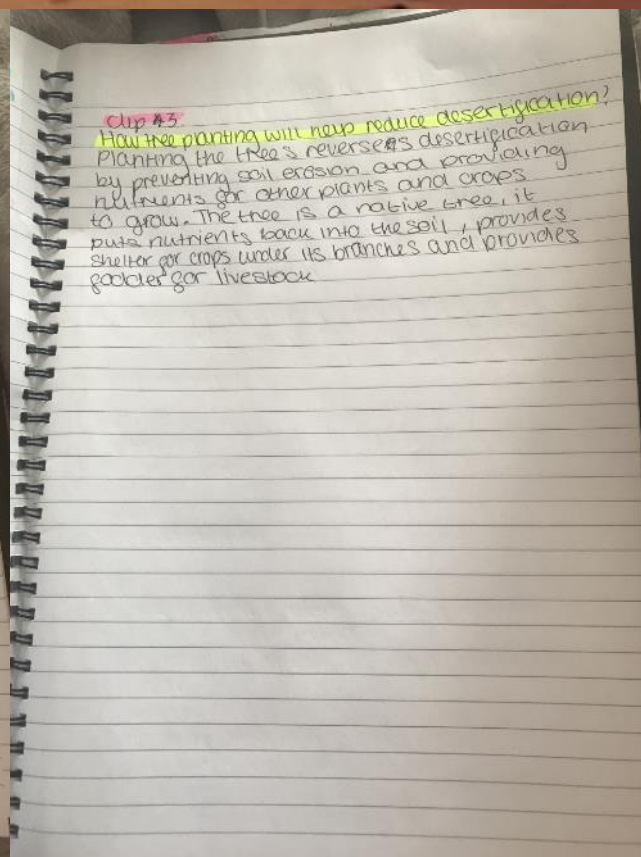 Clip #3
How tree planting will help reduce desertification?
Planting the tree's reverses desertification
by preventing soil erosion and providing
nutrients for other plants and crops
to grow. The tree is a native tree, it
puts nutrients back into the soil, provides
shelter for crops under its branches and provides
fodder for livestock